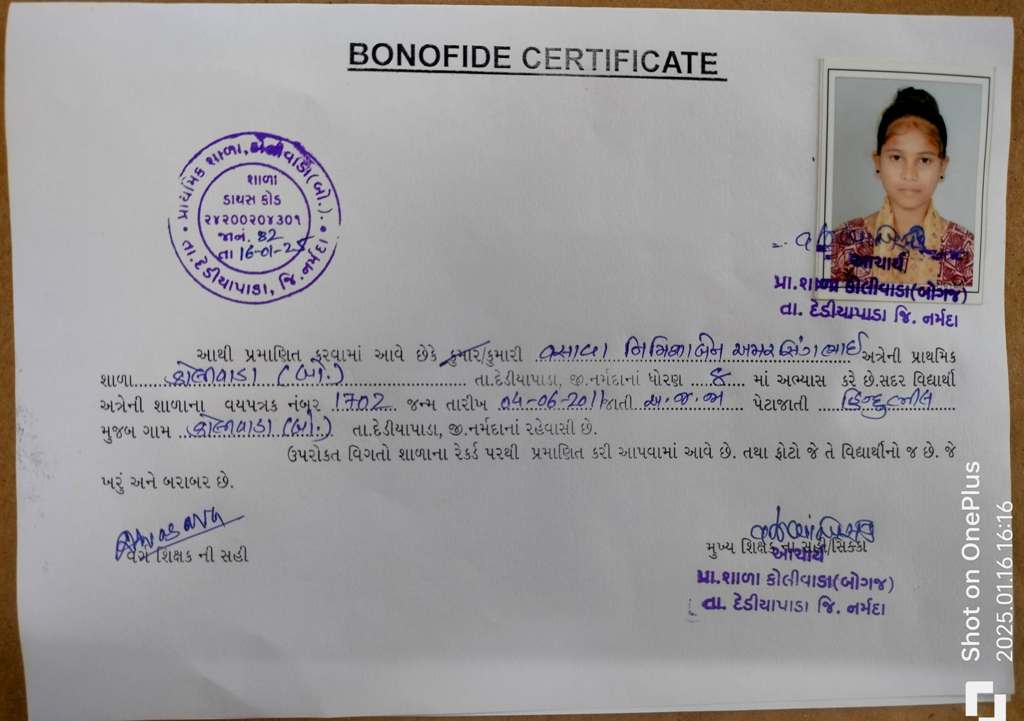 BONOFIDE CERTIFICATE
પ્રાથમિક શાળા, કોલીવાડા(બો.)
શાળા
ડાયસ કોડ
૨૪૨૦૦૨૦૪૩૦૧
જાનં. 82
તા 16-01-25
તા. દેડીયાપાડા, જિ. નર્મદા
આચાર્ય
પ્રા.શાળા કોલીવાડા(બોગજ)
તા. દેડીયાપાડા જિ. નર્મદા
આથી પ્રમાણિત કરવામાં આવે છેકે કુમાર/કુમારી વસાવા અમરસિંગભાઈ અત્રેની પ્રાથમિક
શાળા કોલીવાડા (બો.) તા.દેડીયાપાડા, જી.નર્મદાનાં ધોરણ 8 માં અભ્યાસ કરે છે.સદર વિદ્યાર્થી
અત્રેની શાળાના વયપત્રક નંબર 1702 જન્મ તારીખ 04-06-2011 જાતી અ.જ.જા પેટાજાતી હિન્દુભીલ
મુજબ ગામ કોલીવાડા (બો.) તા.દેડીયાપાડા, જી.નર્મદાનાં રહેવાસી છે.
ઉપરોકત વિગતો શાળાના રેકર્ડ પરથી પ્રમાણિત કરી આપવામાં આવે છે. તથા ફોટો જે તે વિદ્યાર્થીનો જ છે. જે
ખરું અને બરાબર છે.
વર્ગ શિક્ષક ની સહી
મુખ્ય શિક્ષક ના સહી/સિક્કા
આચાર્ય
પ્રા.શાળા કોલીવાડા(બોગજ)
તા. દેડીયાપાડા જિ. નર્મદા
Shot on OnePlus
2025.01.16 16:16